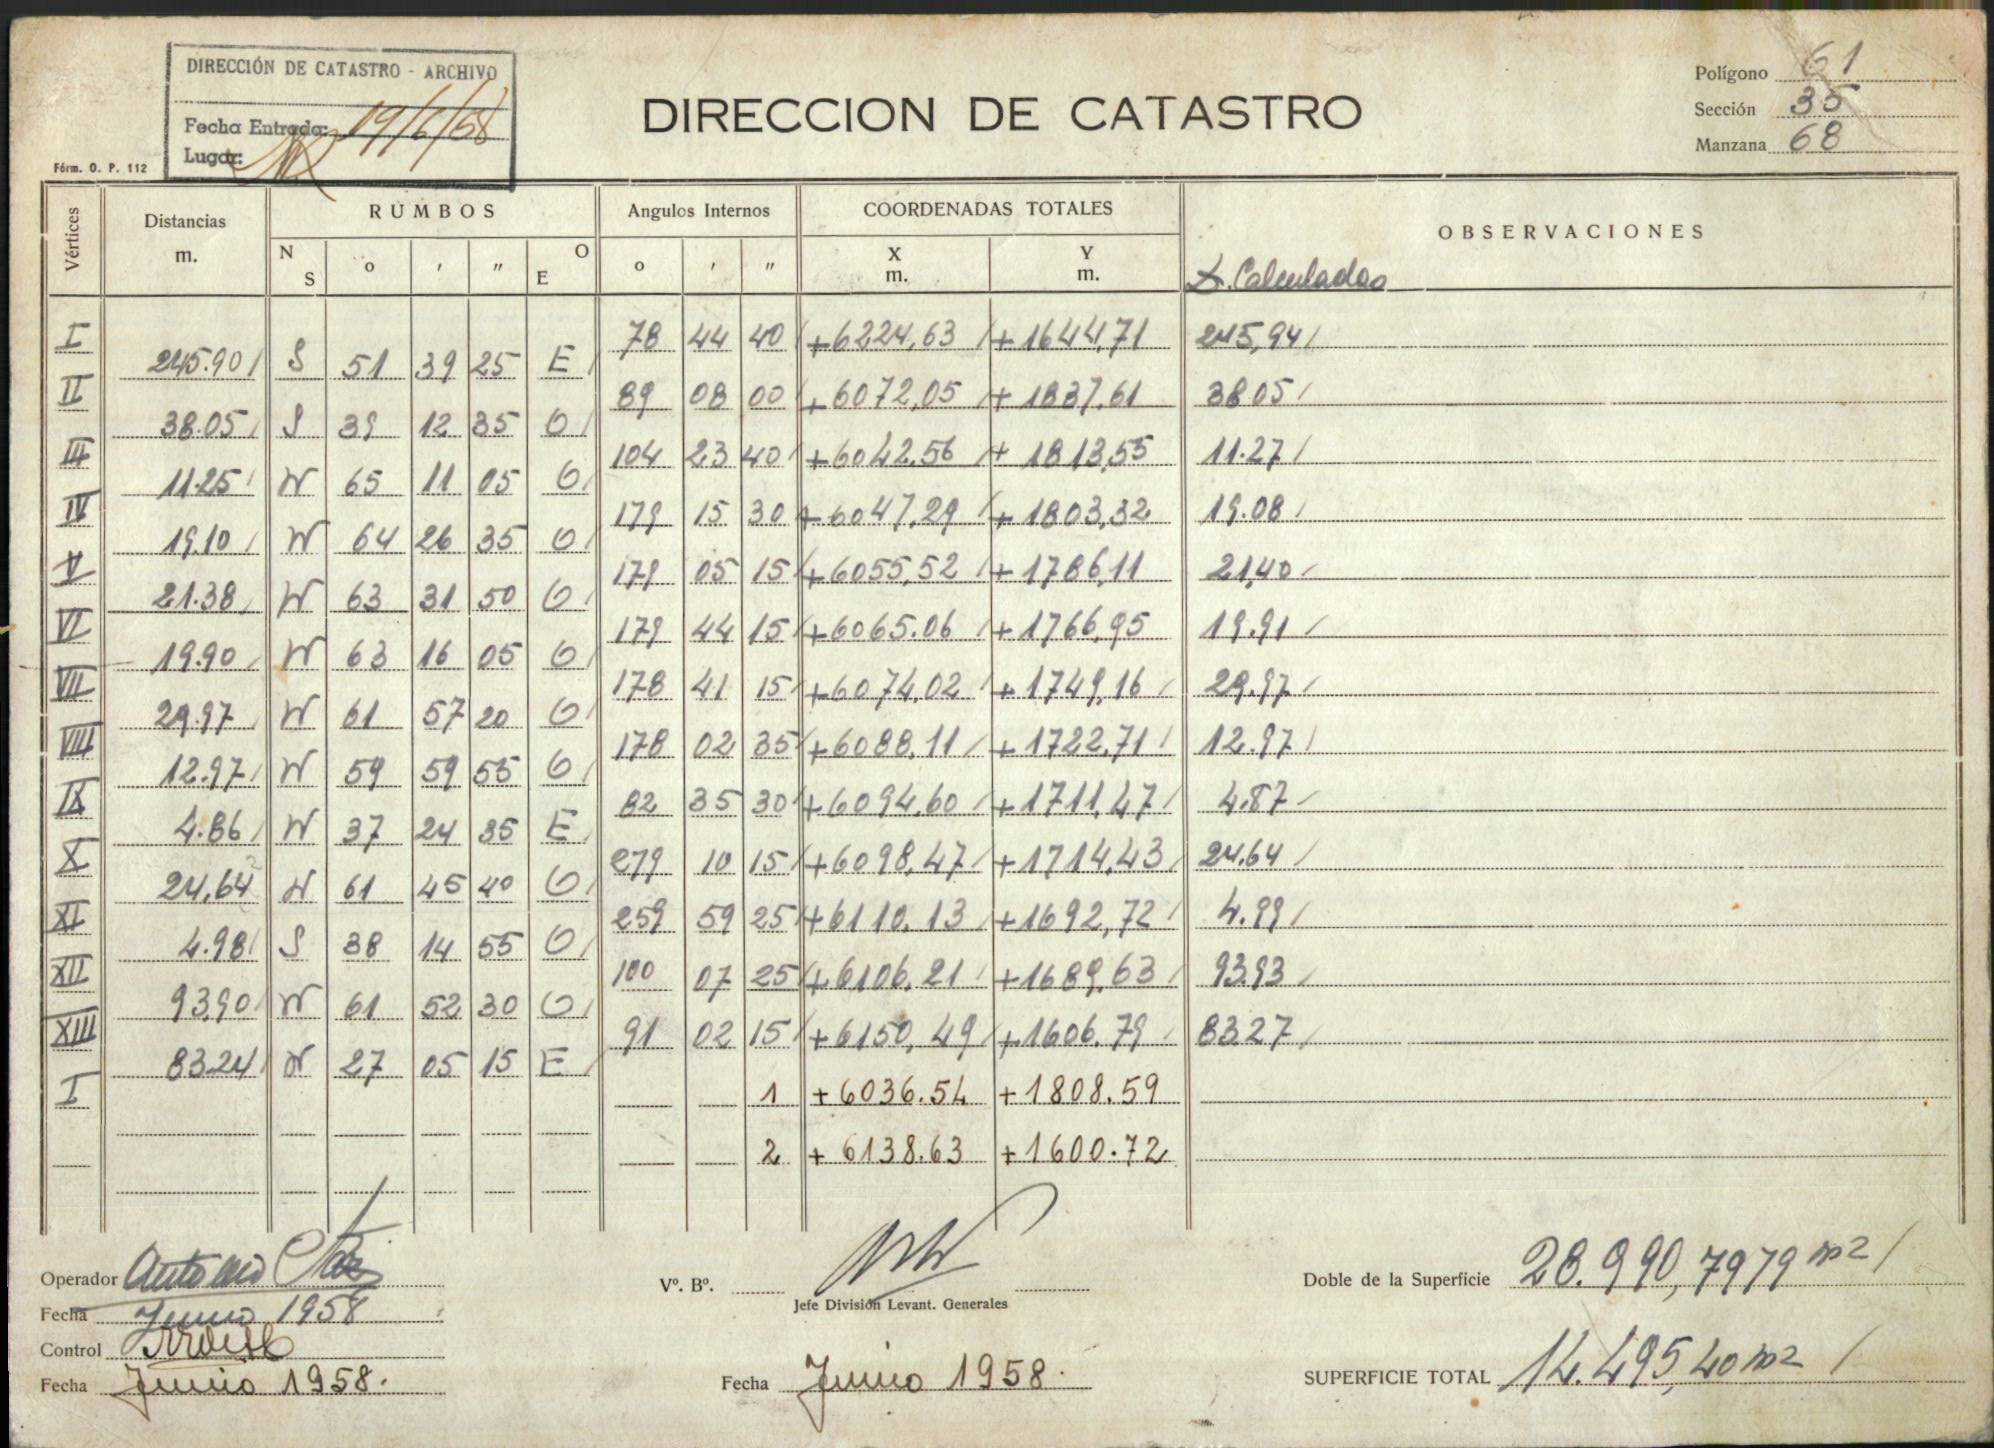 DIRECCIÓN DE CATASTRO - ARCHIVO
Fecha Entrada: 19/6/58
Lugar:
Fórm. O. P. 112
DIRECCION DE CATASTRO
Polígono 61
Sección 35
Manzana 68
Vértices Distancias m. RUMBOS N S o ' " O E Angulos Internos o ' " COORDENADAS TOTALES X m. Y m. OBSERVACIONES
D. Calculadas
I 78 44 40 +6224,63 +1644,71 245,94
245.90 S 51 39 25 E
II 89 08 00 +6072,05 +1837,61 38.05
38.05 S 39 12 35 O
III 104 23 40 +6042.56 +1813,55 11.27
11.25 N 65 11 05 O
IV 179 15 30 +6047,29 +1803,32 19.08
19.10 N 64 26 35 O
V 179 05 15 +6055,52 +1786,11 21,40
21.38 N 63 31 50 O
VI 179 44 15 +6065.06 +1766,95 19.91
19.90 N 63 16 05 O
VII 178 41 15 +6074,02 +1749,16 29.97
29.97 N 61 57 20 O
VIII 178 02 35 +6088,11 +1722,71 12.97
12.97 N 59 59 55 O
IX 82 35 30 +6094,60 +1711,47 4.87
4.86 N 37 24 35 E
X 279 10 15 +6098,47 +1714,43 24.64
24,64 N 61 45 40 O
XI 259 59 25 +6110,13 +1692,72 4.99
4.98 S 38 14 55 O
XII 100 07 25 +6106,21 +1689,63 93.93
93,90 N 61 52 30 O
XIII 91 02 15 +6150,49 +1606.79 83.27
83.24 N 27 05 15 E
I
1 +6036.54 +1808.59
2 +6138.63 +1600.72
Operador Antonio
Fecha Junio 1958
Control
Fecha Junio 1958.
Vº. Bº.
Jefe División Levant. Generales
Fecha Junio 1958.
Doble de la Superficie 28.990,7979 m2
SUPERFICIE TOTAL 14.495,40 m2